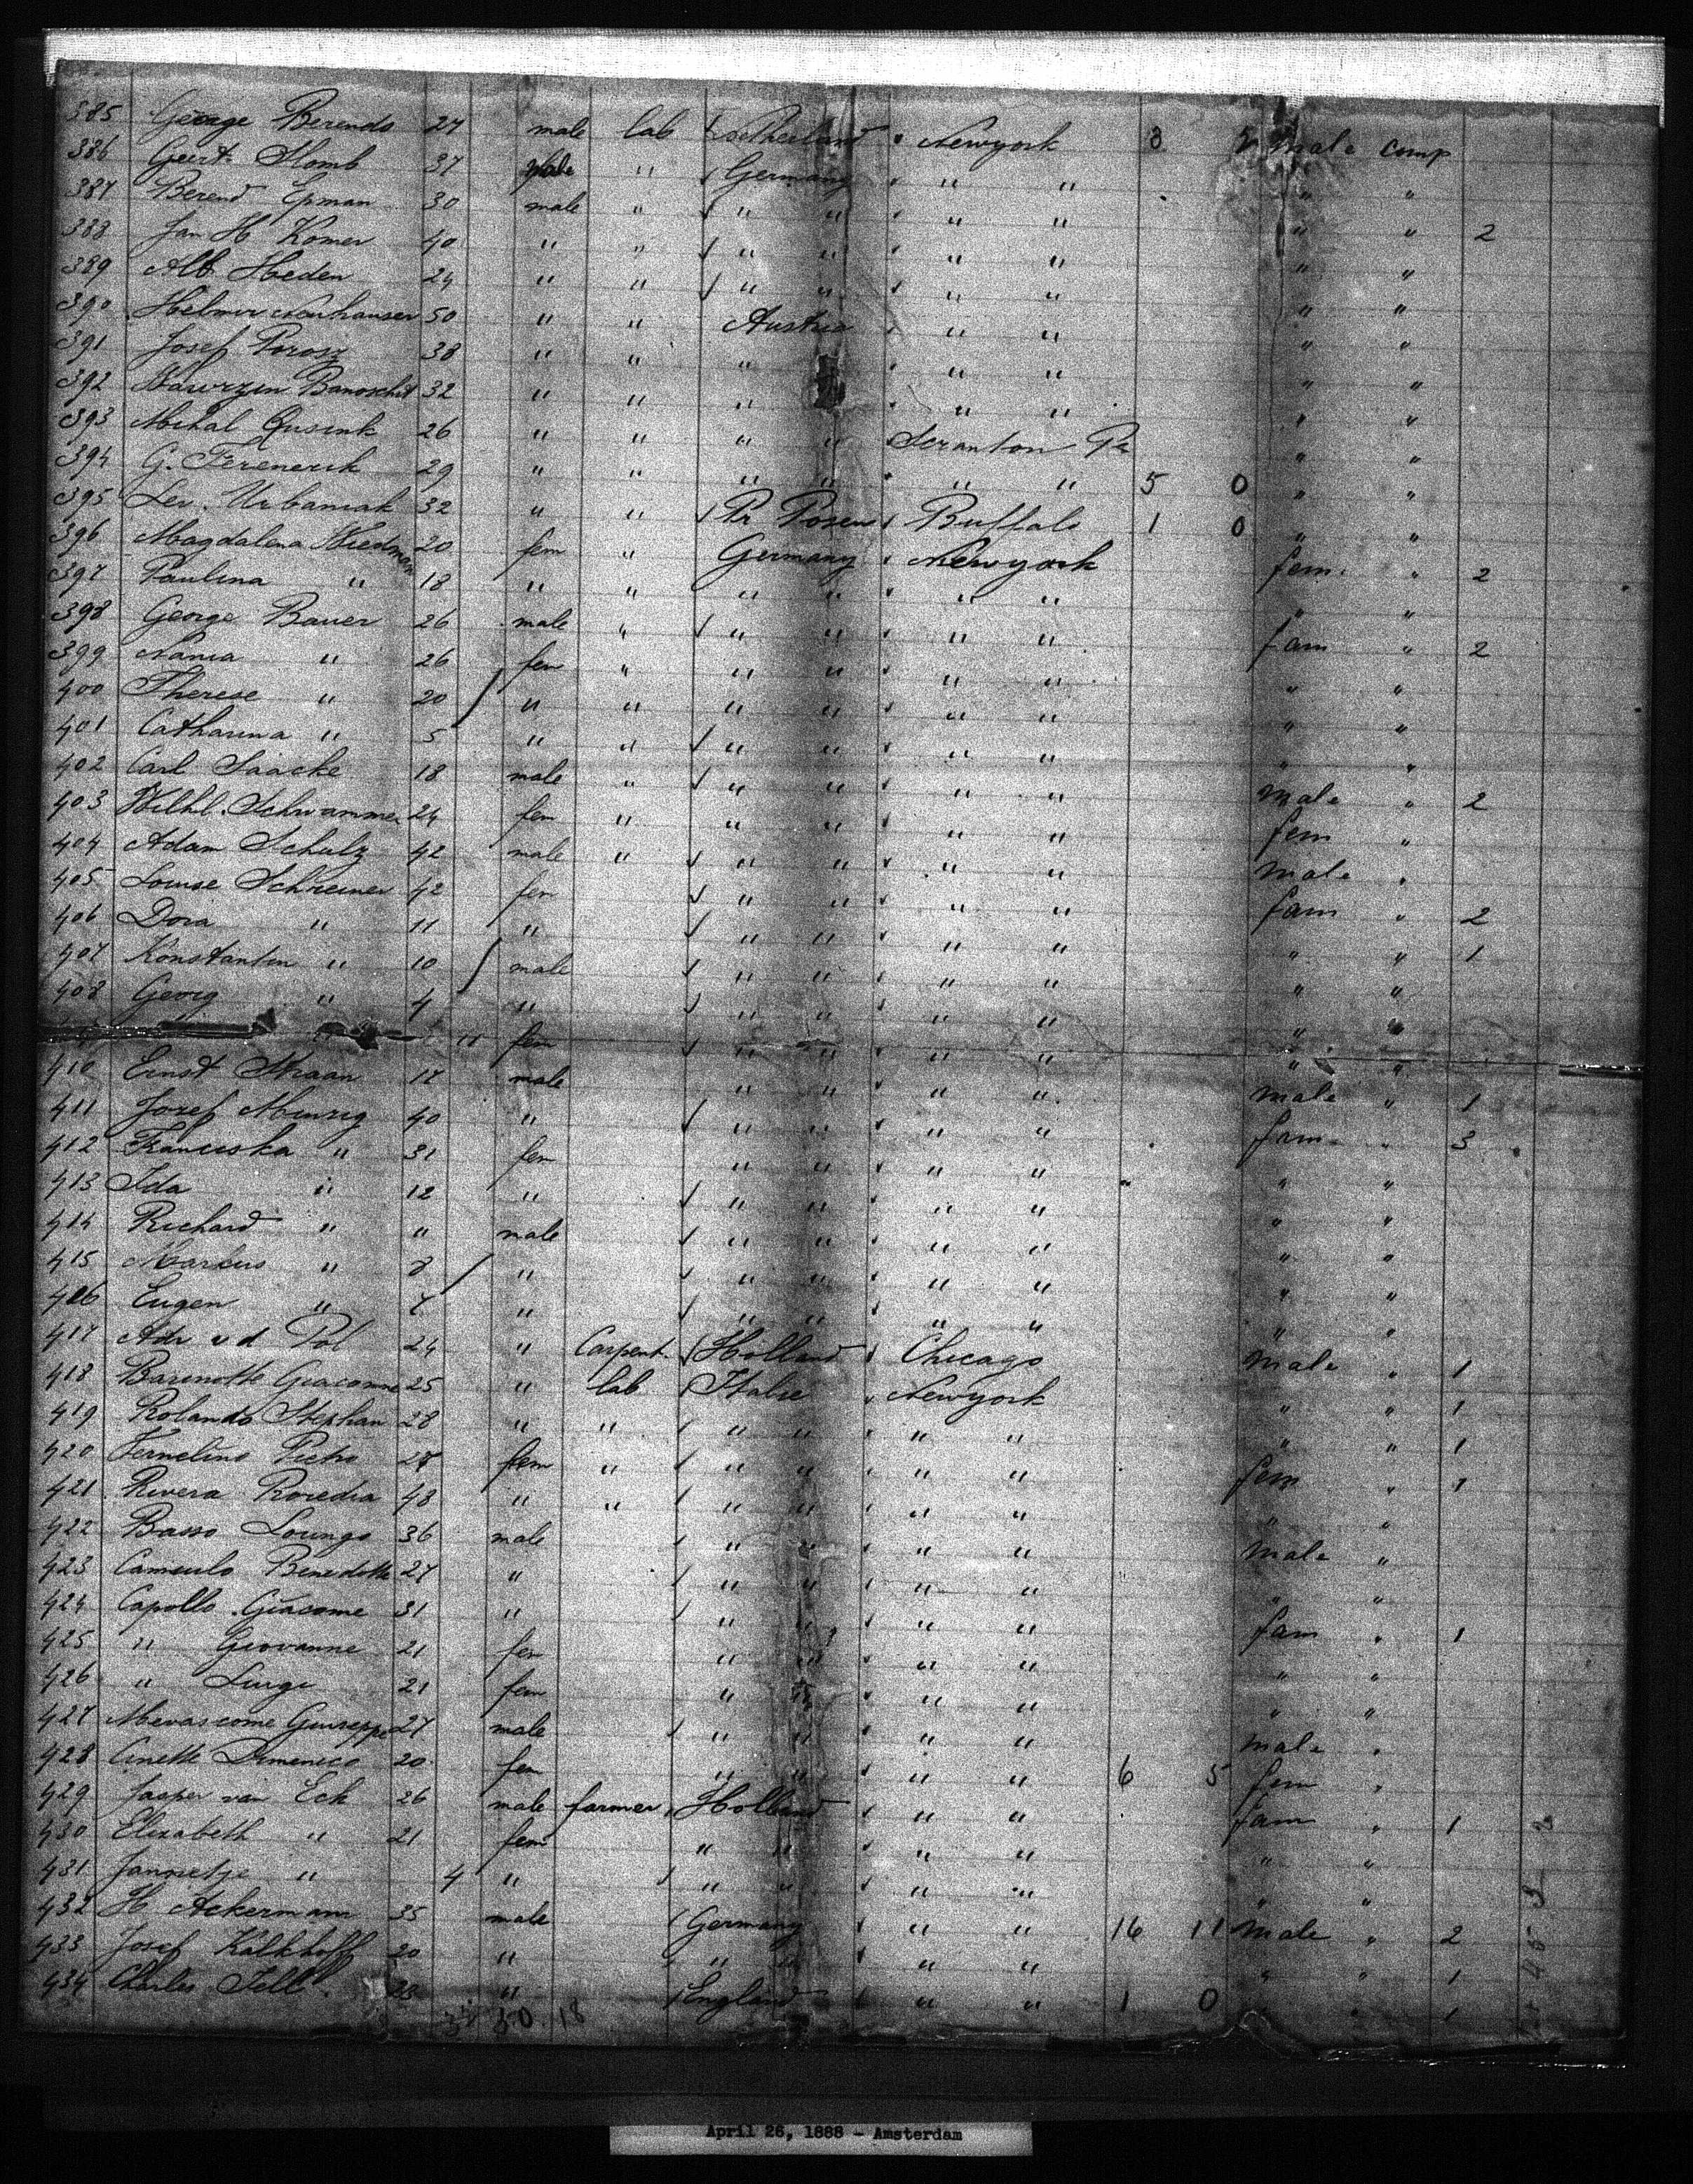 385 George Berends 27 male lab Netherland Newyork 3 5 male comp
386 Geert Slomb 37 male " Germany " " " "
387 Berend Epman 30 male " " " " " " "
388 Jan H Komer 40 " " " " " " " " 2
389 Alb Heden 24 " " " " " " " "
390 Helmer 50 " " Austria " " " "
391 Josef Porosz 38 " " " " " " "
392 32 " " " " " " "
393 Mihal 26 " " " " Scranton Pa " "
394 G. Ferenerik 29 " " " " " " 5 0 " "
395 Lev. Urbaniak 32 " " Pr Posen Buffalo 1 0 " "
396 Magdalena 20 fem " Germany Newyork fem. " 2
397 Paulina " 18 " " " " " " " "
398 George Bauer 26 male " " " " " fam " 2
399 " 26 fem " " " " " " "
400 Therese " 20 " " " " " " " "
401 Catharina " 5 " " " " " " " "
402 Carl Saacke 18 male " " " " " male " 2
403 Wilhl. Schwammer 24 fem " " " " " fem "
404 Adam Schulz 42 male " " " " " male "
405 Louise Schreiner 42 fem " " " " fam " 2
406 Dora " 11 " " " " " " " 1
407 Konstantin " 10 male " " " " " "
408 Georg " 4 " " " " " " "
" 11 fem " " " " " "
410 Ernst 17 male " " " " male " 1
411 Josef 40 " " " " " fam " 3
412 Franciska " 31 fem " " " " " "
413 Ida " 12 " " " " " " "
414 Richard " " male " " " " " "
415 Markus " 8 " " " " " " "
416 Eugen " 7 " " " " " " "
417 Adr v d Pol 24 " Carpent. Holland Chicago male " 1
418 Barinotte Giacomme 25 " lab Italie Newyork " " 1
419 Rolando Stephan 28 " " " " " " " " 1
420 Pietro 27 fem " " " " " fem " 1
421 Rivera 48 " " " " " " " "
422 Basso Loungo 36 male " " " " male "
423 Benedotte 27 " " " " " " "
424 Capollo Giacome 31 " " " " " fam " 1
425 " Giovanne 21 fem " " " " " "
426 " Luigi 21 fem " " " " " "
427 Giuseppe 27 male " " " " male "
428 Domenico 20 fem " " " " 6 5 fem "
429 Jasper van Eck 26 male farmer Holland " " fam " 1
430 Elizabeth " 21 fem " " " " " "
431 Jannetje " 4 " " " " " " "
432 H Ackermann 35 male Germany " " 16 11 male " 2
433 Josef Kalkhoff 20 " " " " " " " 1
434 Charles Tell " England " " 1 0 " " 1
30 18
April 26, 1888 - Amsterdam